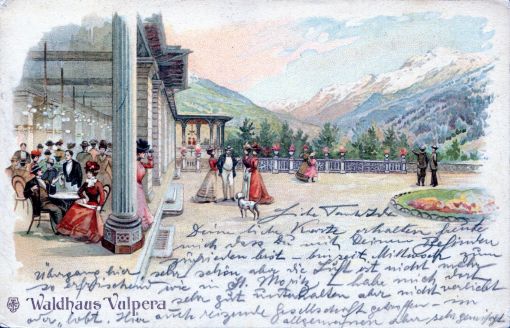 Liebe Tante
Deine liebe Karte erhalten freute
mich dass du mit Deinem Befinden
zufrieden bist bin seit Mittwoch zum
Übergang hier sehr schön aber die Luft ist nicht mehr
so erfrischend wie in St. Moritz habe mich dort
sehr gut unterhalten aber nicht verliebt
oder „lobt". Hier auch reizende Gesellschaft im
allgemeinen aber sehr
Waldhaus Vulpera